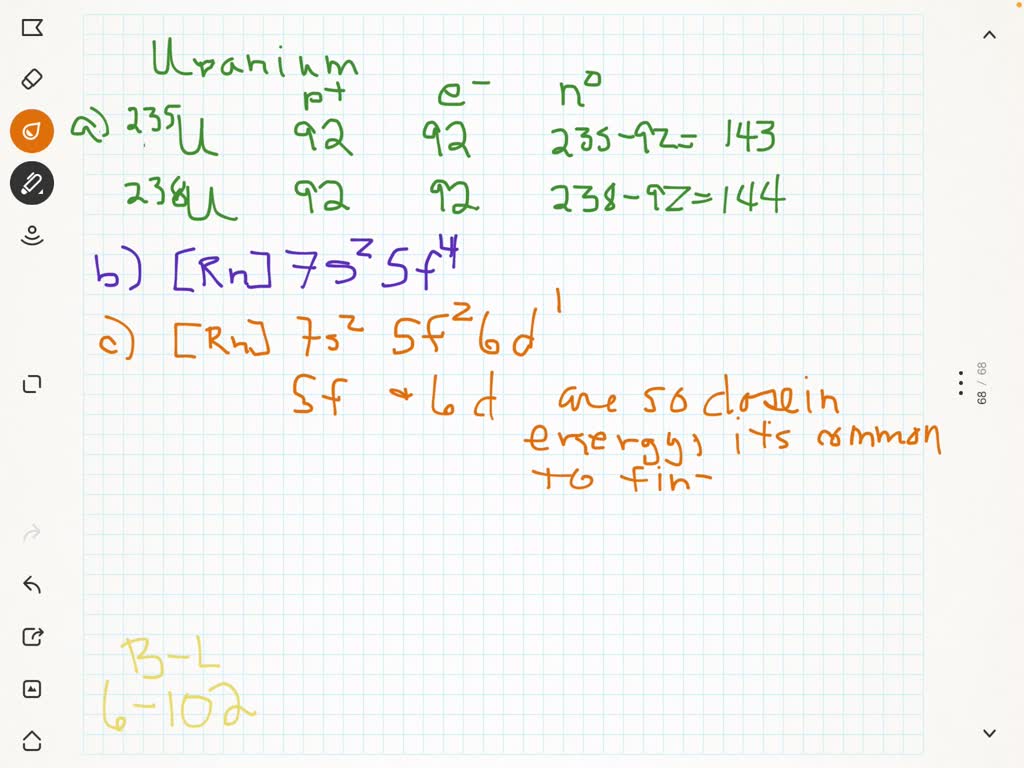 Uranium
p⁺ e⁻ n⁰
a) ²³⁵U 92 92 235-92= 143
²³⁸U 92 92 238-92=144
b) [Rn] 7s² 5f⁴
c) [Rn] 7s² 5f² 6d¹
5f + 6d are so close in
energy, its common
to fin
68 / 68
B-L
6-102